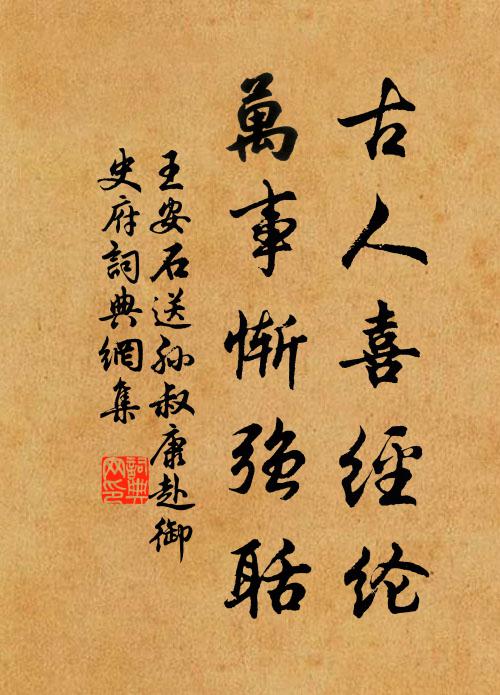 古人喜經纶
萬事慚強聒
王安石送孙叔康赴御
史府詞典網集
詞典
网印